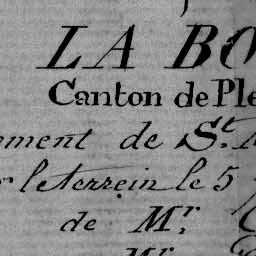 LA BO
Canton de Ple
ment de St.
le terrein le 5
de Mr.
Mr.